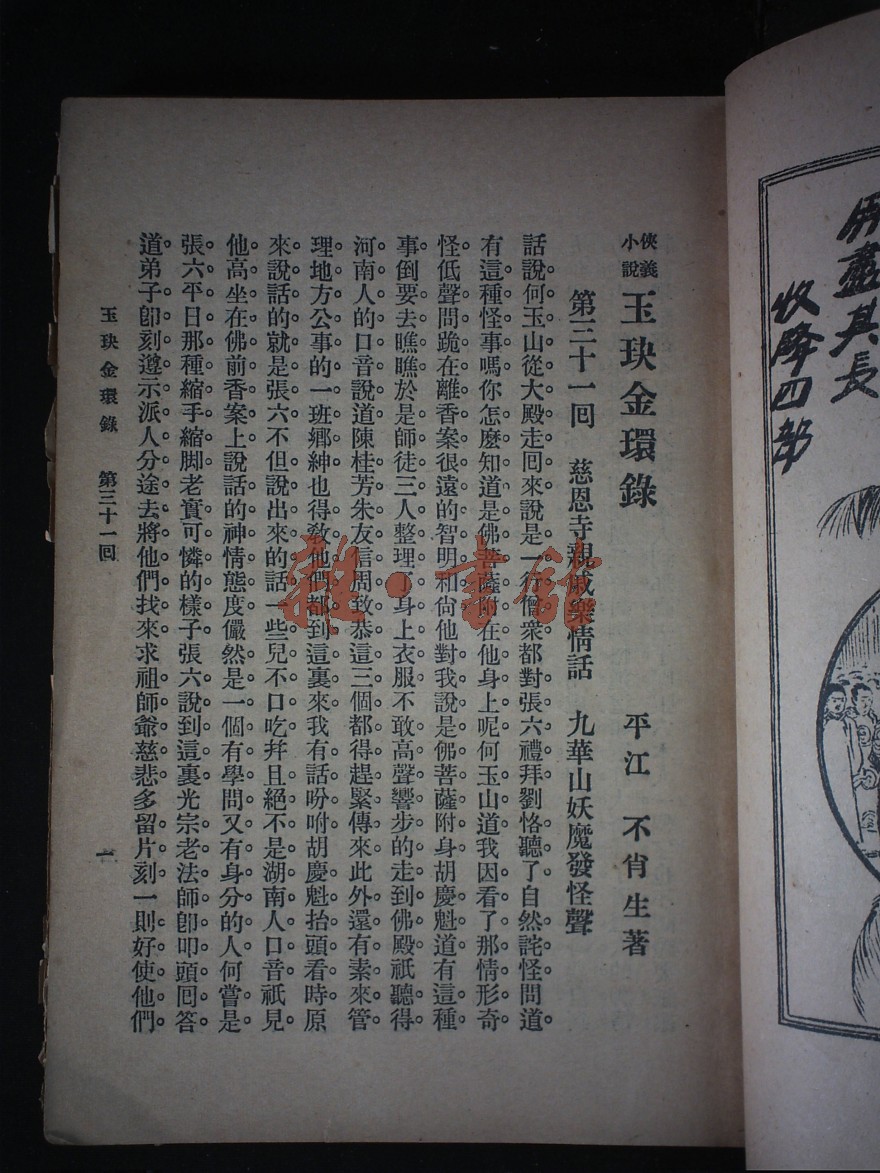 用盡其長
收降四部
俠義小說 玉玦金環錄 平江 不肖生著
第三十一回 慈恩寺親戚樂情話 九華山妖魔發怪聲
話說何玉山從大殿走囘來說是一行僧衆都對張六禮拜劉恪聽了自然詫怪問道
有這種怪事嗎你怎麼知道是佛菩薩附在他身上呢何玉山道我因看了那情形奇
怪低聲問跪在離香案很遠的智明和尙他對我說是佛菩薩附身胡慶魁道有這種
事倒要去瞧瞧於是師徒三人整理了身上衣服不敢高聲響步的走到佛殿祇聽得
河南人的口音說道陳桂芳朱友信周致恭這三個都得趕緊傳來此外還有素來管
理地方公事的一班鄉紳也得敎他們都到這裏來我有話吩咐胡慶魁抬頭看時原
來說話的就是張六不但說出來的話一些兒不口吃幷且絕不是湖南人口音祇見
他高坐在佛前香案上說話的神情態度儼然是一個有學問又有身分的人何嘗是
張六平日那種縮手縮脚老實可憐的樣子張六說到這裏光宗老法師卽叩頭囘答
道弟子卽刻遵示派人分途去將他們找來求祖師爺慈悲多留片刻一則好使他們
玉玦金環錄 第三十一回 一
雜·書館